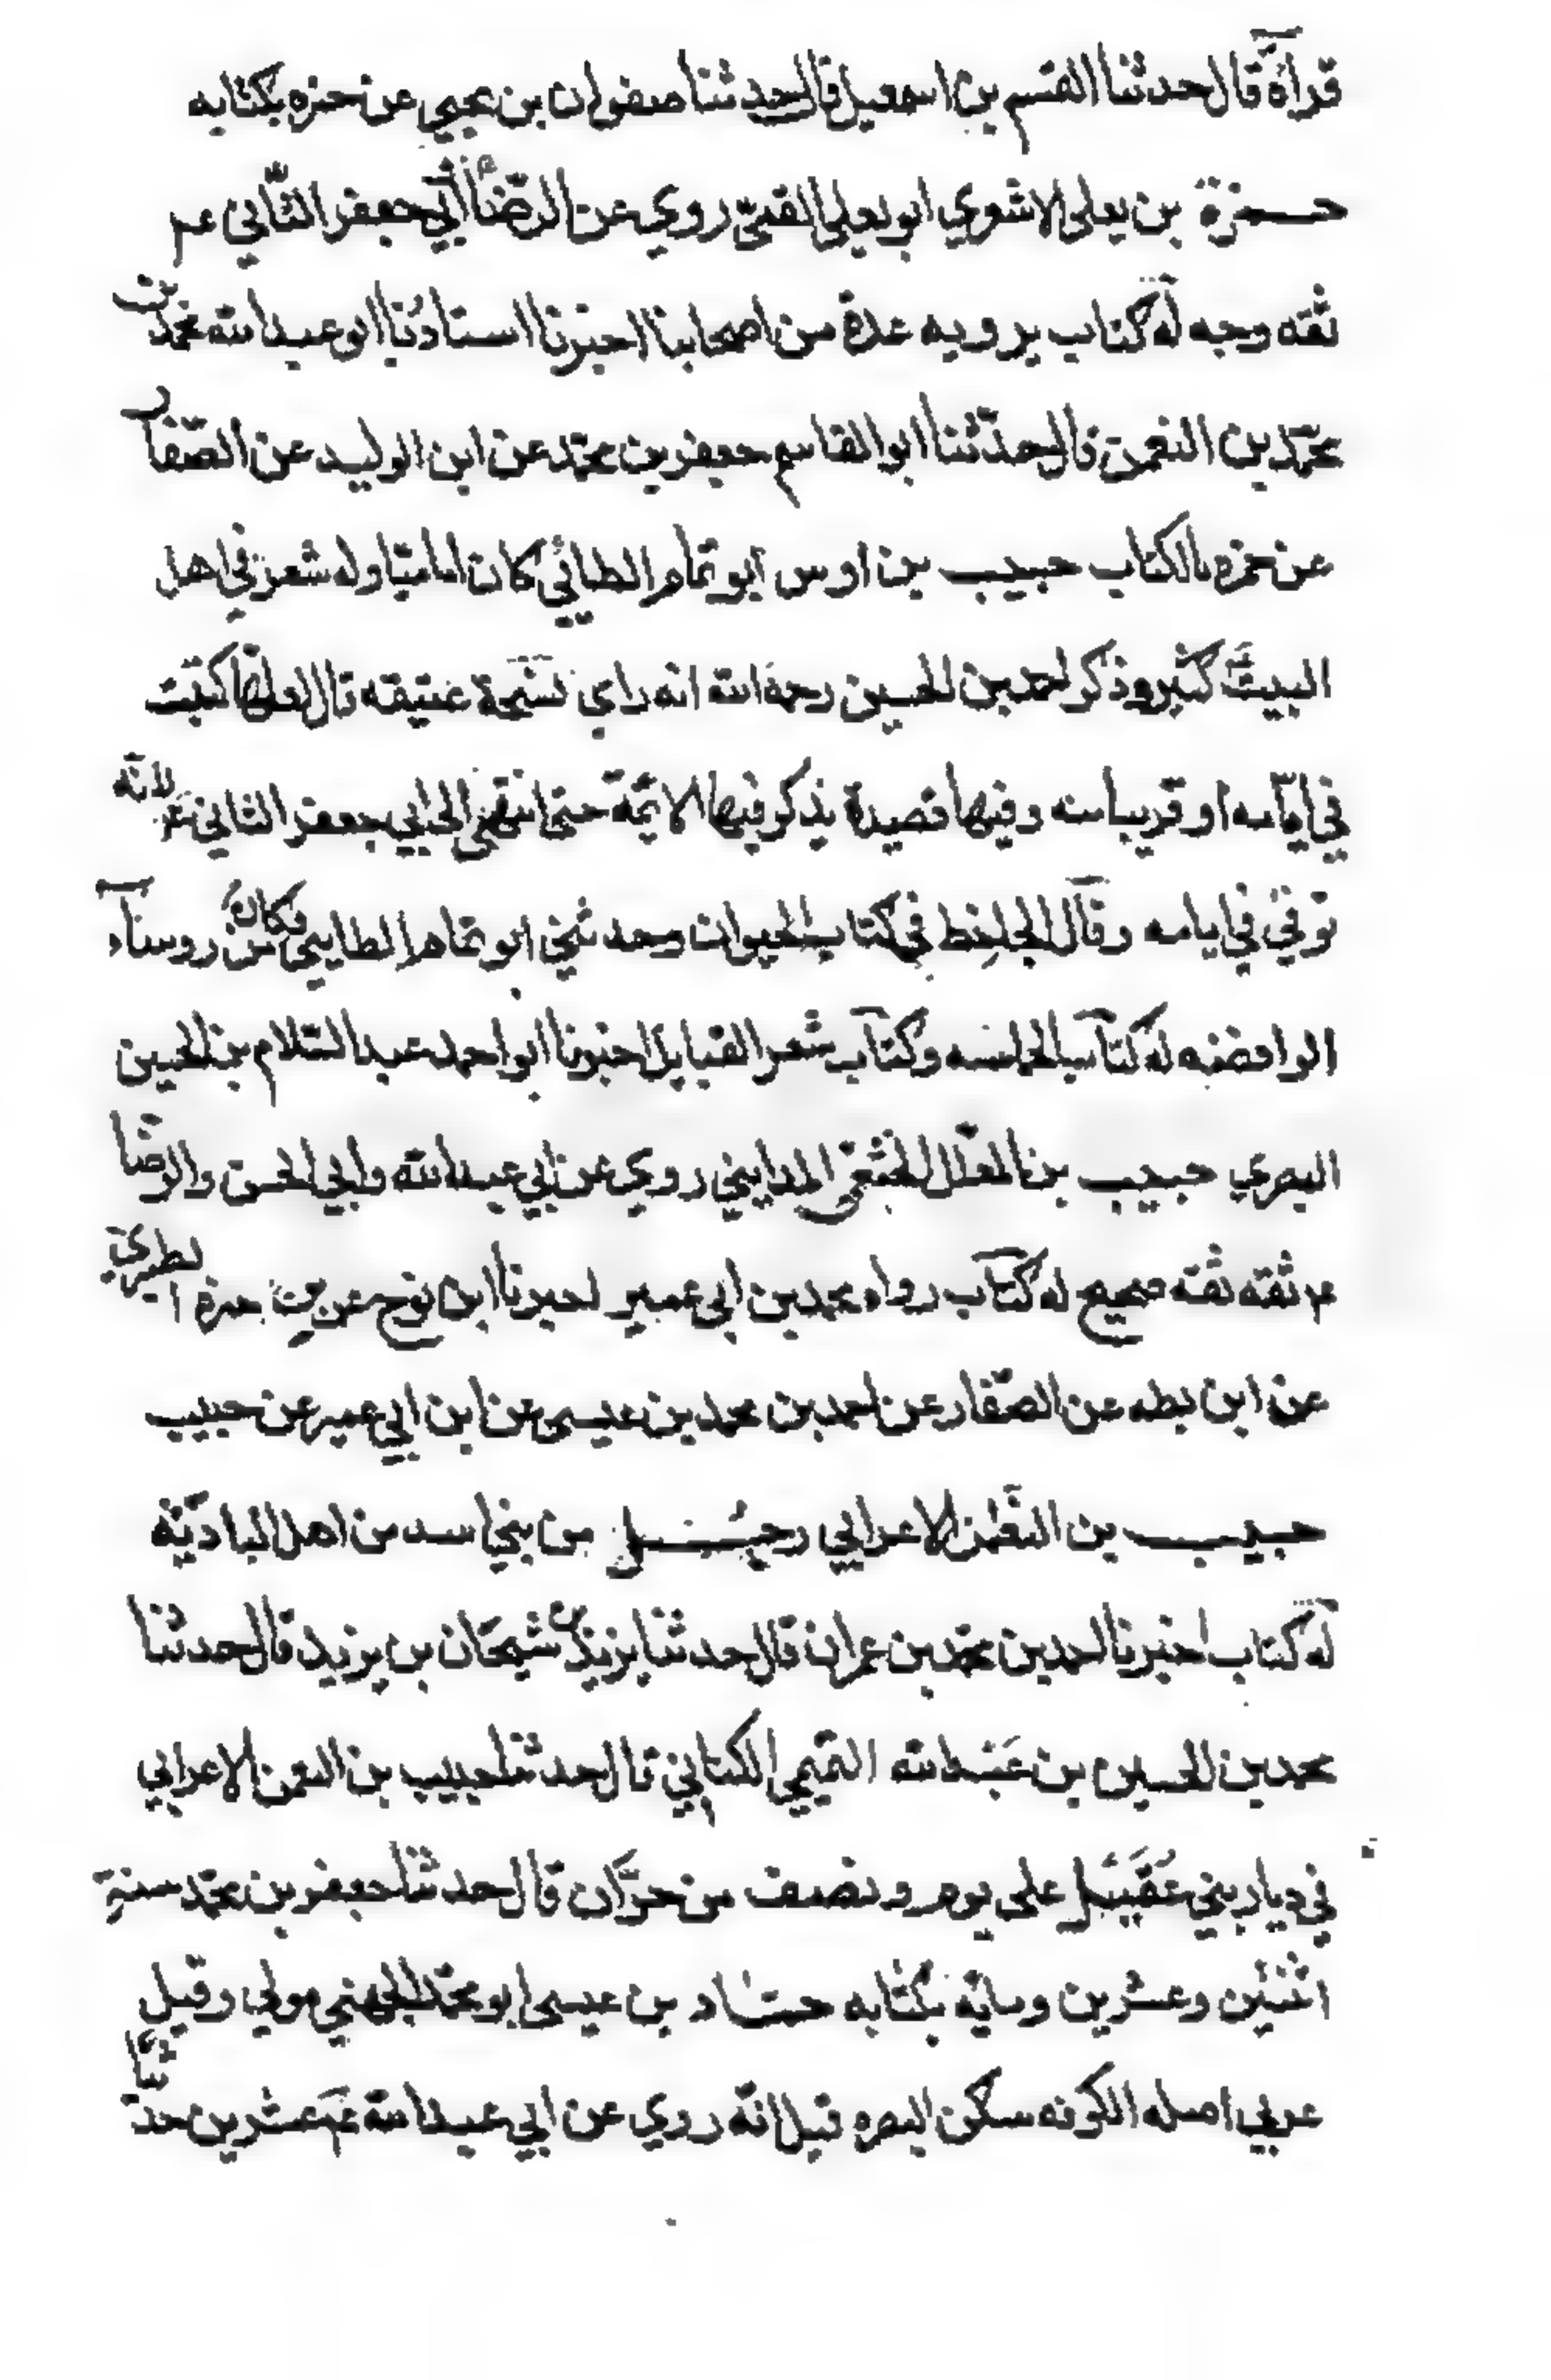 قراءة قال حدثنا القسم بن اسمعيل قال حدثنا صفوان بن يحيى عن حمزه بكتابه
حمزة بن يعلى الاشعري ابو يعلى القمّي روي عن الرّضا ابي جعفر الثّاني عم
ثقه وجه له كتاب يرويه عدة من اصحابنا اخبرنا استادنا ابو عبد الله محمّد بن
محمّد بن النعمن قال حدّثنا ابو القاسم جعفر بن محمّد عن ابن الوليد عن الصّفار
عن حمزه بالكتاب حبيب بن اوس ابو تمام الطائي كان اماميّا وله شعر في اهل
البيت كثير وذكر احمد بن الحسين رحمه الله انه راي نسخة عتيقه قال لعلّها كتبت
في ايّامه او قريبا منه وفيها قصيدة يذكر فيها الائمّة حتى انتهى الى ابي جعفر الثاني ع لانّه
توفي في ايامه وقال الجاحظ في كتاب الحيوان وحدثني ابو تمام الطايي وكان من روساء
الرافضه له كتاب الحماسه وكتاب شعر القبايل اخبرنا ابو احمد عبد السّلام بن الحسين
البصري حبيب بن المعلّل الخثعمي المدايني روي عن ابي عبد الله وابي الحسن والرّضا
عم ثقه ثقه صحيح له كتاب رواه محمد بن ابي عمير اخبرنا ابن نوح عن بن حمزه الطبري
عن ابن بطه عن الصّفار عن احمد بن محمد بن عيسى عن ابن ابي عمير عن حبيب
حبيب بن النعمن الاعرابي رجل من بني اسد من اهل الباديّة
له كتاب اخبرنا احمد بن محمّد بن عمران قال حدثنا يزيد بن شيحان بن يزيد قال حدثنا
محمد بن الحسين بن عبد الله التميمي الكتابي قال حدثنا حبيب بن النعمن الاعرابي
في ديار بني عُقَيل على يوم ونصف من حرّان قال حدثنا جعفر بن محمّد سنة
اثنين وعشرين ومايه بكتابه حمّاد بن عيسى ابو محمّد الجهني مولي وقيل
عربي اصله الكوفه سكن البصره قيل انّه روي عن ابي عبد الله عم عشرين حدّيثا